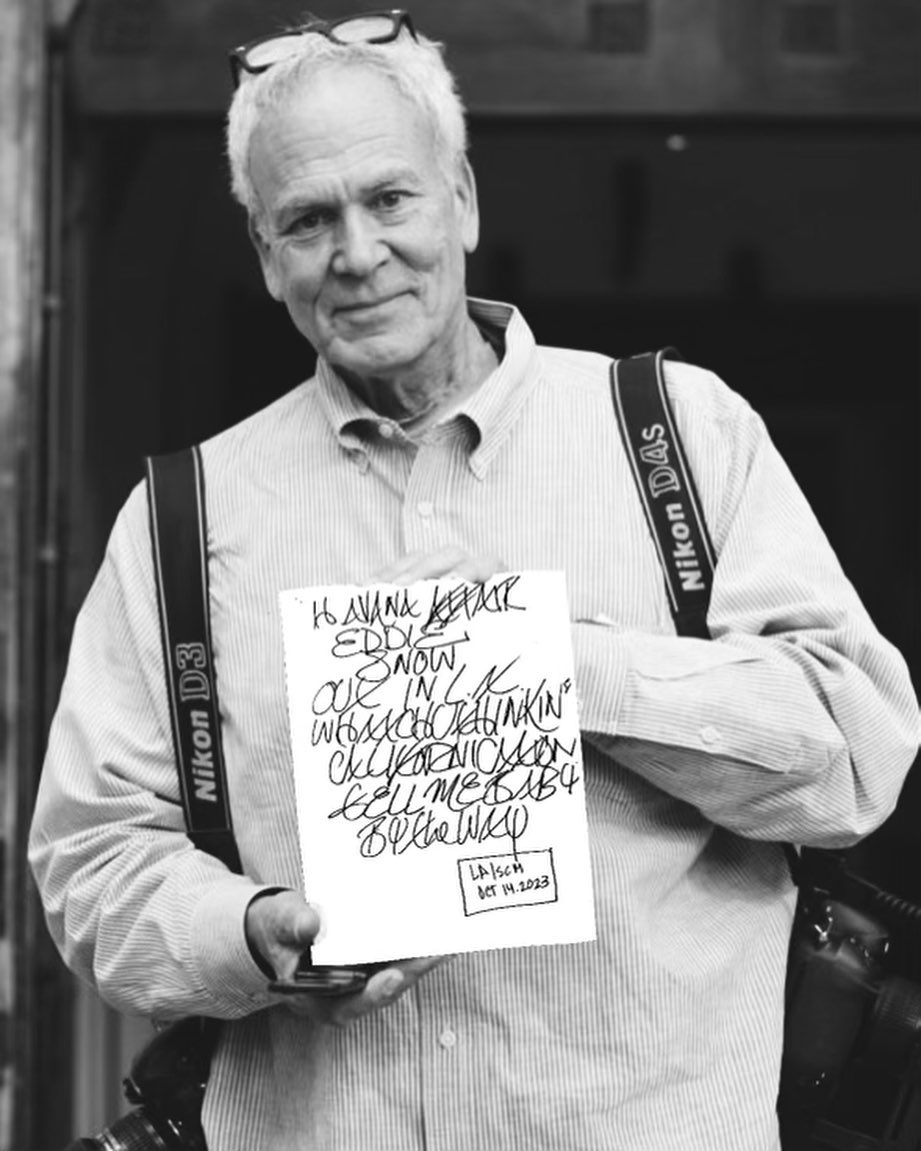 Nikon D3
Nikon D4s
HAVANA AFFAIR
EDDIE
SNOW
OUR IN L.A.
WHATCHU THINKIN'
CALIFORNICATION
TELL ME BABY
BY the WAY
LA/SCM
OCT 14.2023